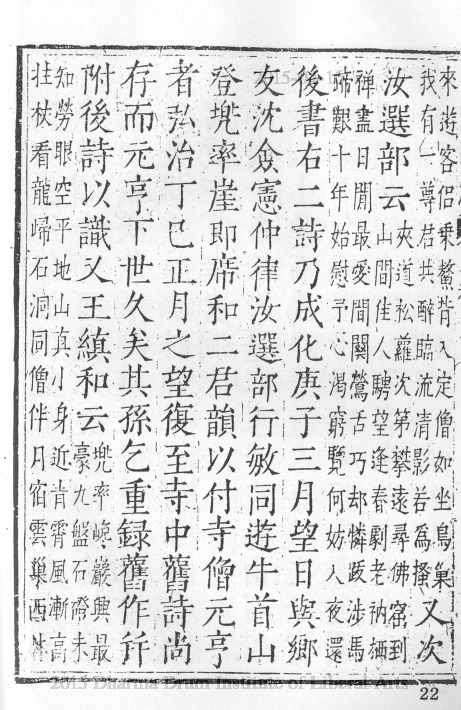 來遊客侶乘鰲背入定僧如坐鳥巢
我有一尊君共醉臨流清影若為搔
又次
汝選部云
夾道松蘿次第攀遠尋佛窟到
山間佳人騁望逢春劇老衲栖
禪盡日閒最愛間關鶯舌巧却憐跋涉馬
蹄艱十年始慰予心渴窮覽何妨入夜還
後書右二詩乃成化庚子三月望日與鄉
友沈僉憲仲律汝選部行敏同遊牛首山
登兠率崖即席和二君韻以付寺僧元亨
者弘治丁巳正月之望復至寺中舊詩尚
存而元亨下世久矣其孫乞重録舊作幷
附後詩以識又王縝和云
兠率峻巖興最
豪九盤石磴未
知勞眼空平地山真小身近青霄風漸高
拄杖看龍歸石洞同僧伴月宿雲巢西林
2015 Dharma Drum Institute of Liberal Arts
22